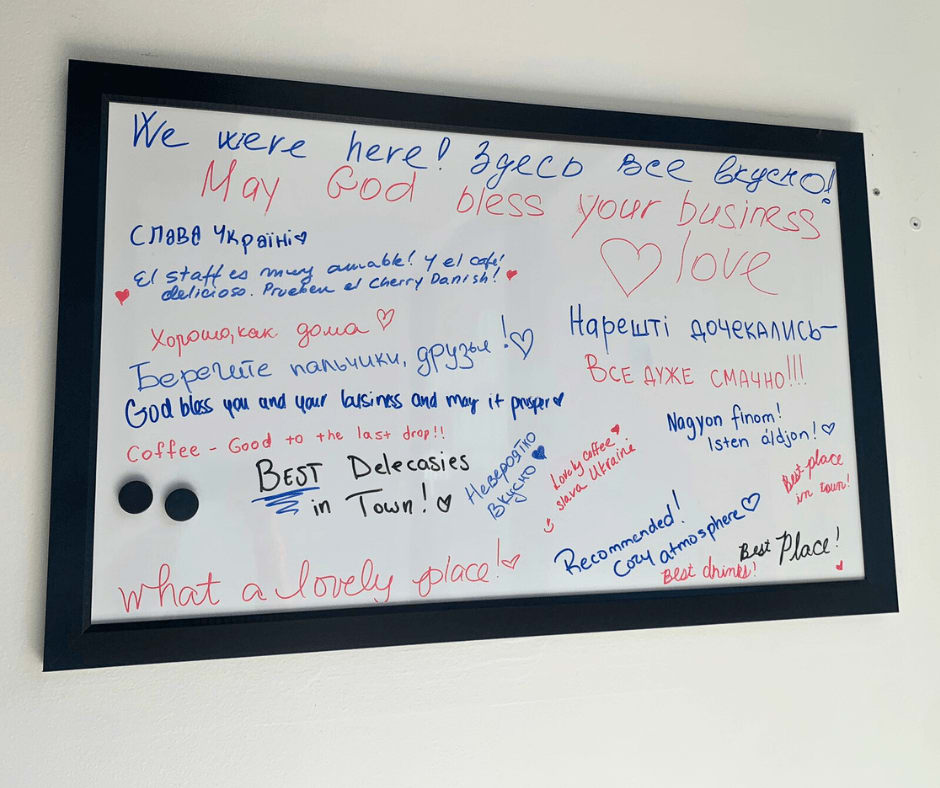 We were here! Здесь все вкусно!
May God bless your business
love
Слава Україні
El staff es muy amable! Y el café
delicioso. Prueben el Cherry Danish!
Хорошо, как дома
Нарешті дочекались—
Берегите пальчики, друзья!
Все дуже смачно!!!
God bless you and your business and may it prosper
Coffee - Good to the last drop!!
Nagyon finom!
Isten áldjon!
BEST Delecasies
in Town!
Невероятно
Вкусно
Lovely coffee
slava Ukraine
Best place
in town!
Recommended!
Cozy atmosphere
Best Place!
Best drinks!
what a lovely place!